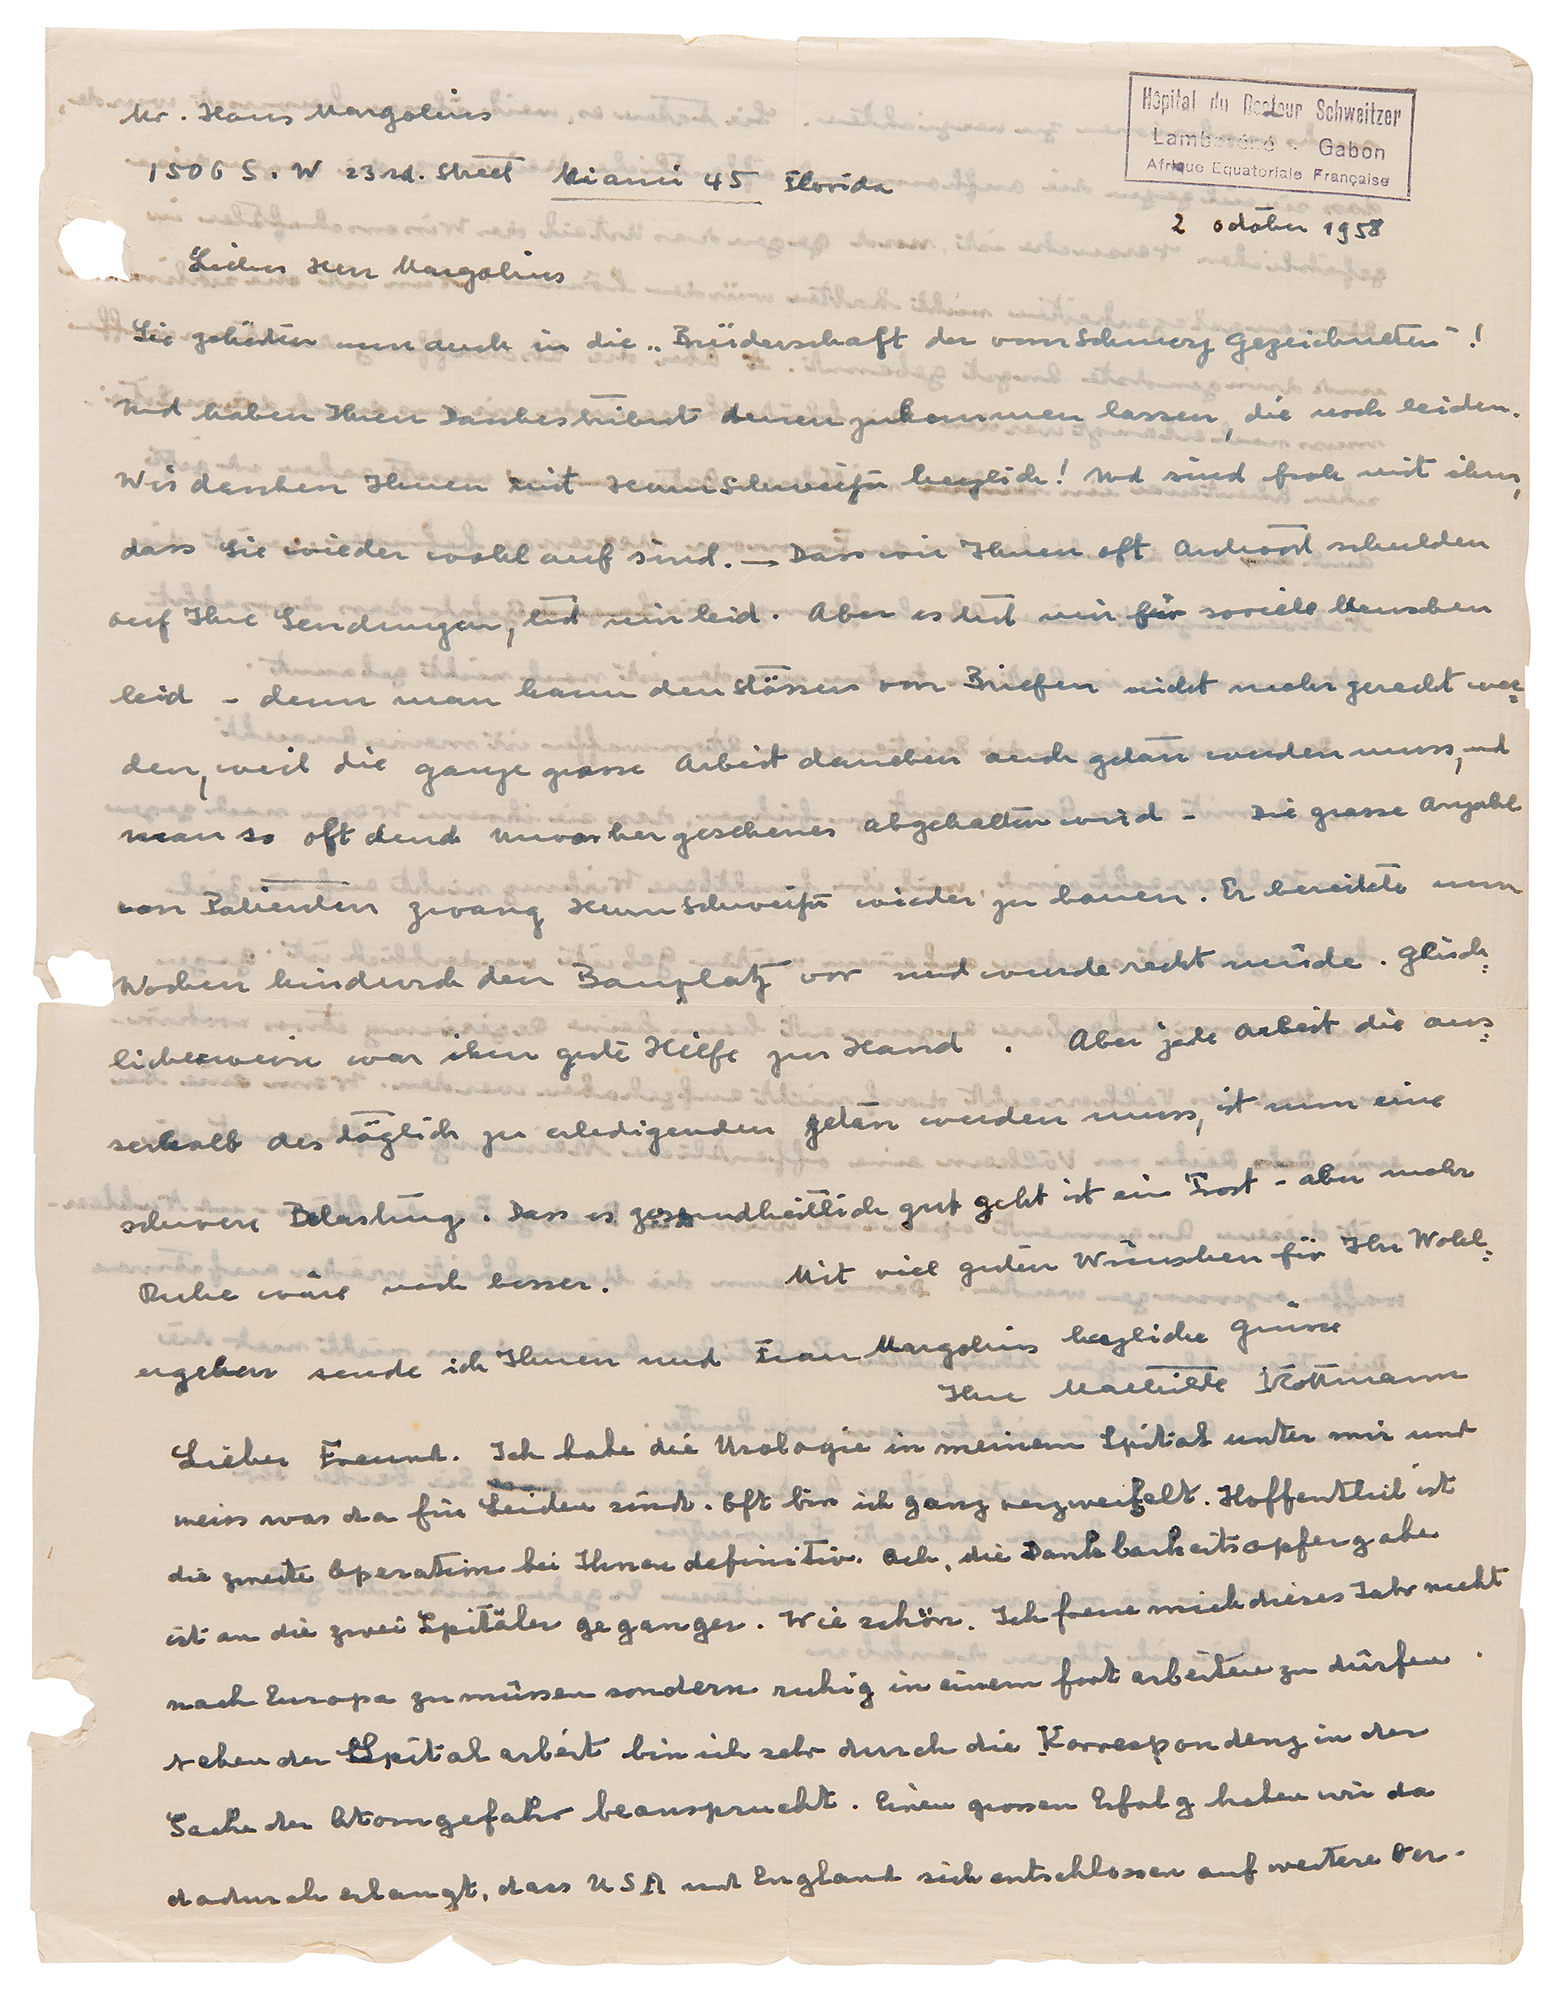 Mr. Hans Margolius
Hôpital du Docteur Schweitzer
Lambaréné - Gabon
Afrique Equatoriale Française
1506 S. W 23rd. Street Miami 45 Florida
2 october 1958
Lieber Herr Margolius
Sie gehören nun auch in die „Brüderschaft der vom Schmerz Gezeichneten"!
Und haben Ihren Dankestribut denen zukommen lassen, die noch leiden.
Wir danken Ihnen mit Herrn Schweitzer herzlich! Und sind froh mit ihm,
dass Sie wieder wohl auf sind. — Dass wir Ihnen oft Antwort schulden
auf Ihre Sendungen, tut mir leid. Aber es tut mir für soviele Menschen
leid - denn man kann den Stössen von Briefen nicht mehr gerecht wer=
den, weil die ganze grosse Arbeit daneben auch getan werden muss, und
man so oft durch Unvorhergesehenes abgehalten wird - Die grosse Anzahl
von Patienten zwang Herrn Schweitzer wieder zu bauen. Er bereitete nun
Wochen hindurch den Bauplatz vor und wurde recht müde. Glück=
licherweise war ihm gute Hilfe zur Hand. Aber jede Arbeit die aus=
serhalb des täglich zu erledigenden getan werden muss, ist nun eine
schwere Belastung. Dass es gesundheitlich gut geht ist ein Trost - aber mehr
Ruhe wäre noch besser. Mit viel guten Wünschen für Ihr Wohl=
ergehen sende ich Ihnen und Frau Margolius herzliche Grüsse
Ihre Mathilde Kottmann
Lieber Freund. Ich habe die Urologie in meinem Spital unter mir und
weiss was da für Leiden sind. Oft bin ich ganz verzweifelt. Hoffentlich ist
die zweite Operation bei Ihnen definitiv. Ach, die Dankbarkeitsopfergabe
ist an die zwei Spitäler gegangen. Wie schön. Ich freue mich dieses Jahr nicht
nach Europa zu müssen sondern ruhig in einem fort arbeiten zu dürfen.
Neben der Spitalarbeit bin ich sehr durch die Korrespondenz in der
Sache der Atomgefahr beansprucht. Einen grossen Erfolg haben wir da
dadurch erlangt, dass USA und England sich entschlossen auf weitere Ver-